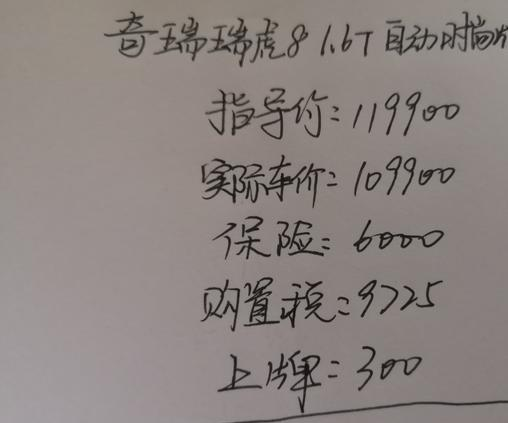 奇瑞瑞虎8 1.6T 自动时尚
指导价:119900
实际车价:109900
保险:6000
购置税:9725
上牌:300